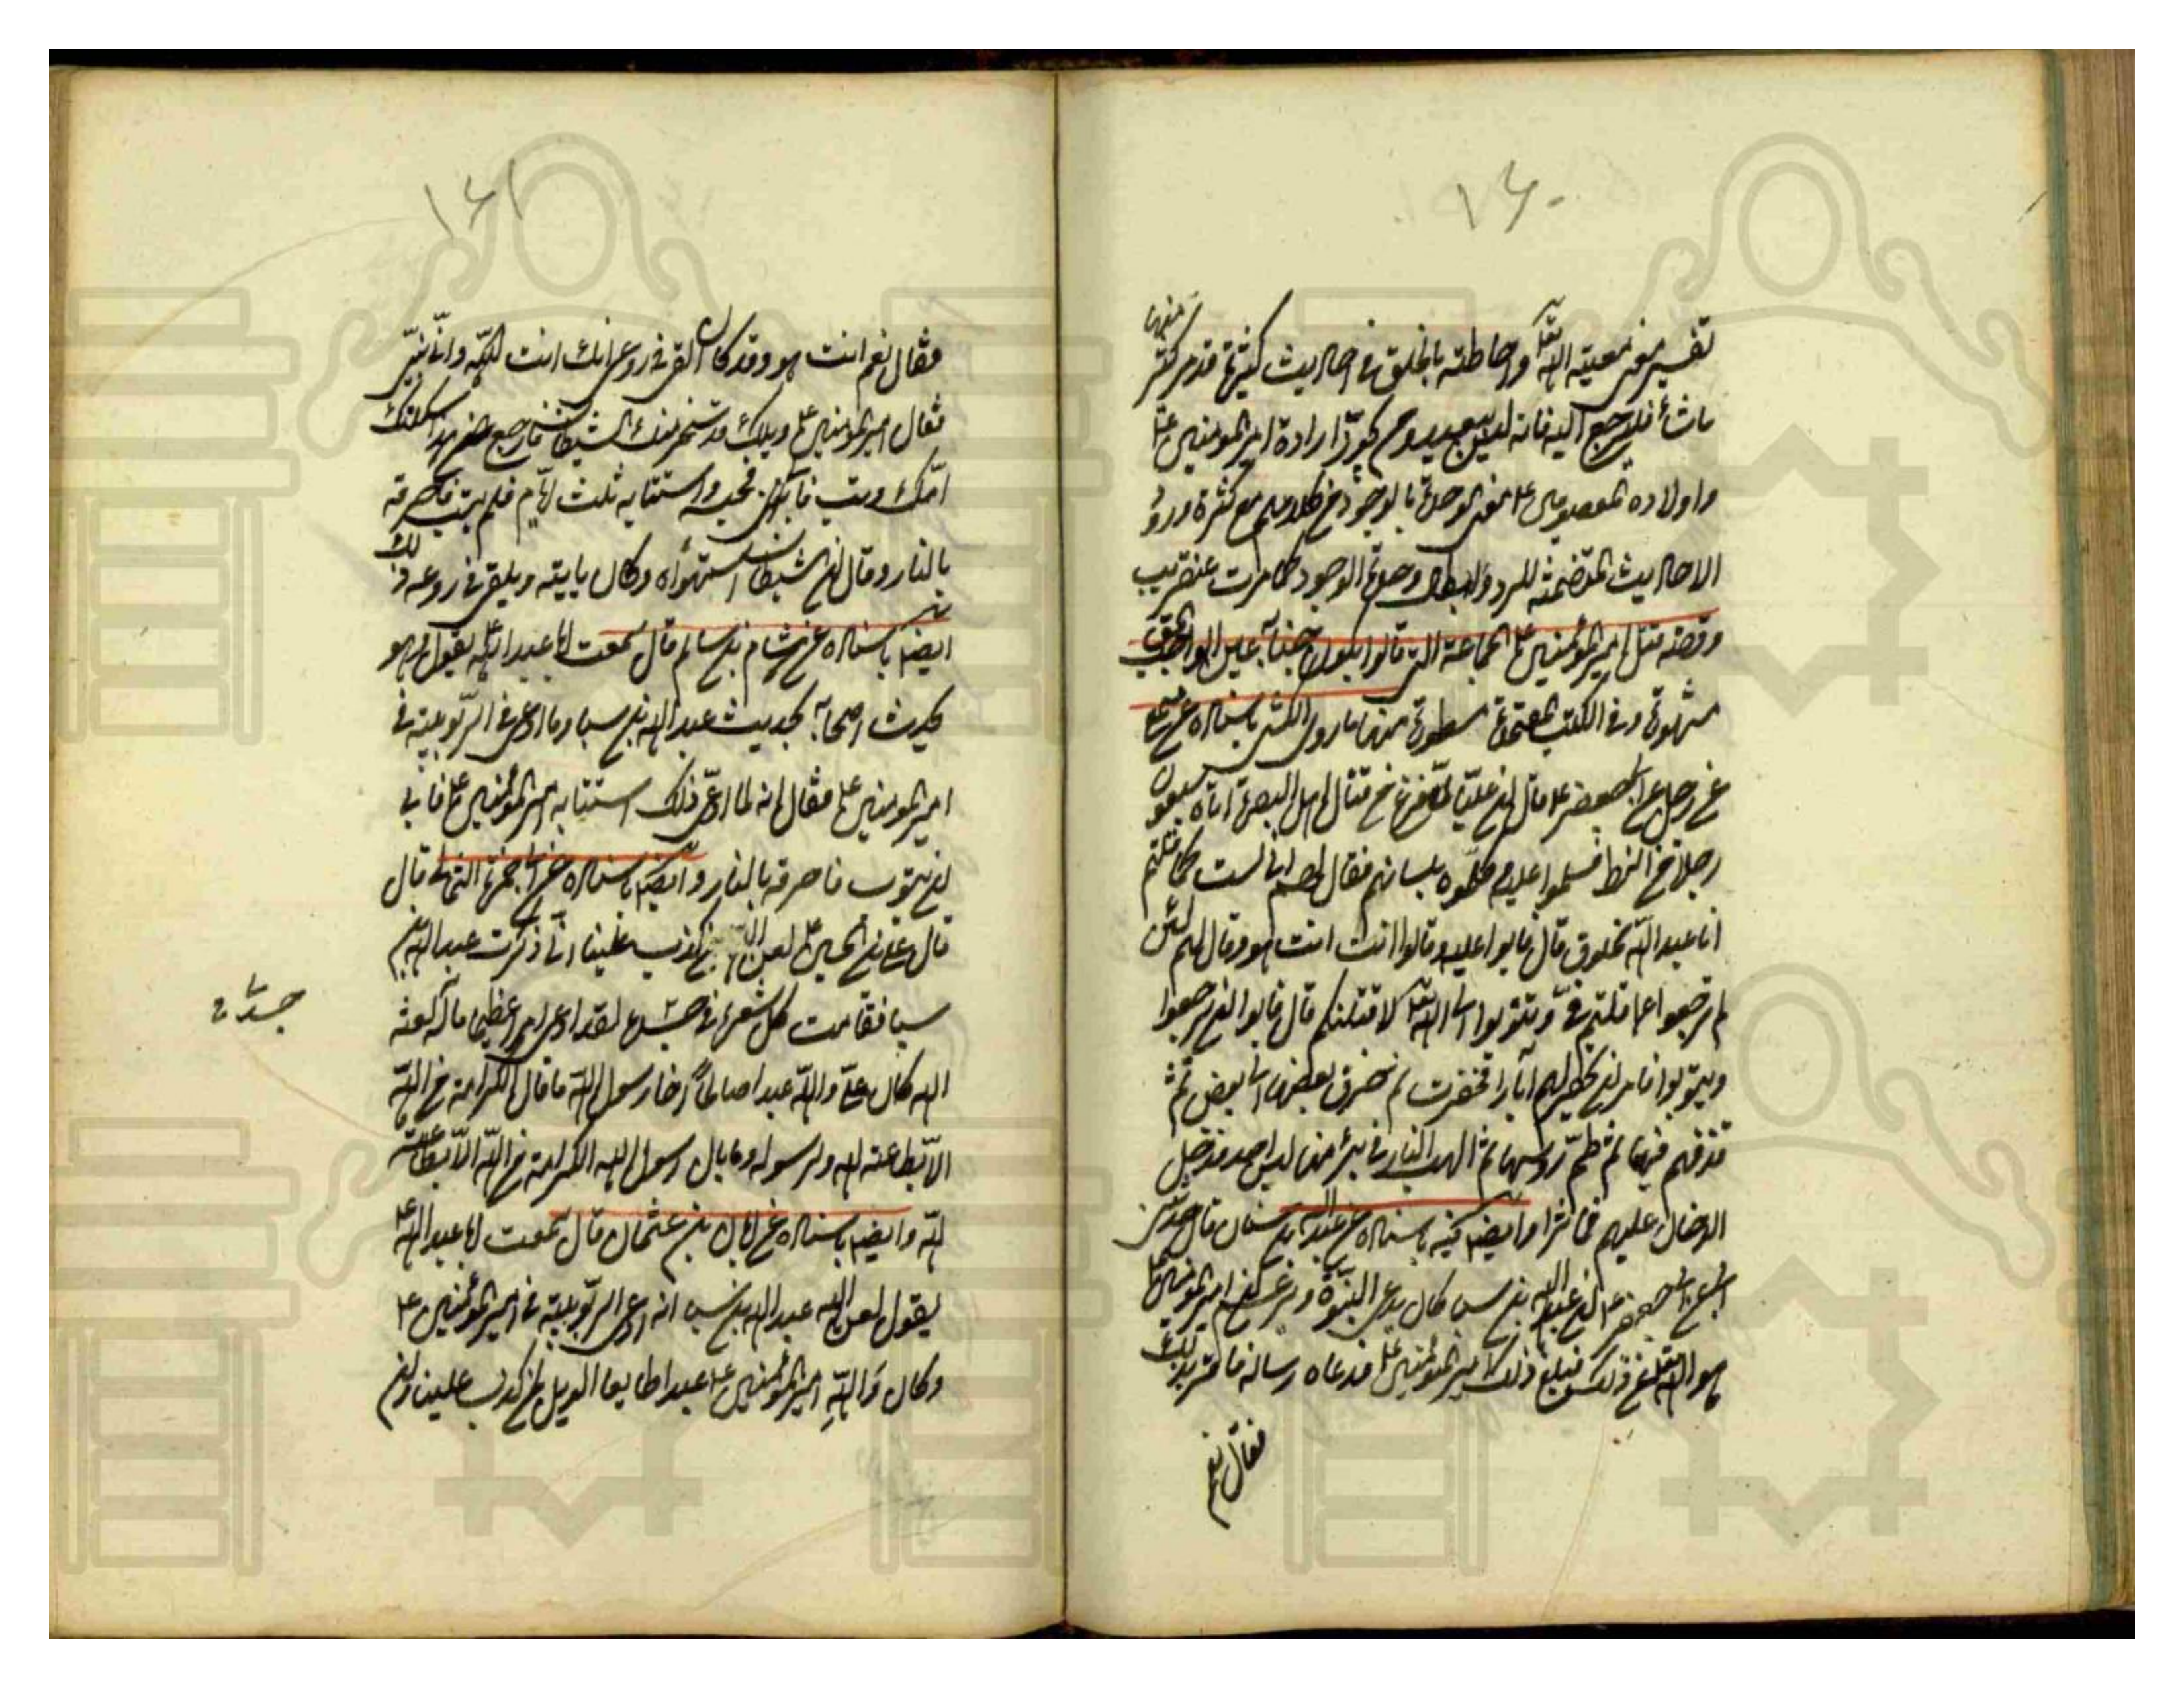 ١٦٠
تفسير معنى معية الله تعالى واحاطته بالخلق فى احاديث كثيرة قد مر كثير منها
شاء فليرجع اليه فانه ليس ببعيد ارادة امير المؤمنين ع
واولاده المعصومين ع معنى الوحدة بالوجود من كلامهم مع كثرة ورود
الاحاديث المتضمنة للرد وابطال وحدة الوجود كما مرت عنقريب
وقصة قتل امير المؤمنين ع الجماعة التى قالوا بكون جنابه عين الواجب الحق
مشهورة وفى الكتب المعتمدة مسطورة منها ما روى الكشى باسناده عن
عن رجل عن ابى جعفر ع قال ان عليا لما فرغ من قتال اهل البصرة اتاه سبعون
رجلا من الزط فسلموا عليه وكلموه بلسانهم فقال لهم انى لست كما قلتم
انا عبد الله مخلوق قال فابوا عليه وقالوا انت انت هو وقال لهم لئن
لم ترجعوا عما قلتم فى وتتوبوا الى الله تعالى لاقتلنكم قال فابوا ان يرجعوا
ويتوبوا فامر ان يحفر لهم آبار فحفرت ثم خرق بعضها الى بعض ثم
قذفهم فيها ثم طم رؤسها ثم الهب النار فى بئر منها ليس احد فدخل
الدخان عليهم فماتوا وايضا فيه باسناده عن عبد الله بن سنان قال حدثنى
ابى عن ابى جعفر ع ان عبد الله بن سبا كان يدعى النبوة ويزعم ان امير المؤمنين ع
هو الله تعالى عن ذلك فبلغ ذلك امير المؤمنين ع فدعاه وساله فاقر بذلك
فقال نعم
١٦١
فقال نعم انت هو وقد كان القى فى روعى انك انت الله وانى نبى
فقال امير المؤمنين ع ويلك قد سخر منك الشيطان فارجع عن هذا ثكلتك
امك وتب فابى فحبسه واستتابه ثلث ايام فلم يتب فاحرقه
بالنار وقال ان الشيطان استهواه وكان ياتيه ويلقى فى روعه ذلك
ايضا باسناده عن هشام بن سالم قال سمعت ابا عبد الله ع يقول وهو
يحدث اصحابه بحديث عبد الله بن سبا وما ادعى من الربوبية فى
امير المؤمنين ع فقال انه لما ادعى ذلك استتابه امير المؤمنين ع فابى
ان يتوب فاحرقه بالنار وايضا باسناده عن ابى حمزة الثمالى قال
قال على بن الحسين ع لعن الله من كذب علينا انى ذكرت عبد الله بن
سبا فقامت كل شعرة فى جسدى لقد ادعى امرا عظيما ماله لعنه
الله كان على والله عبدا صالحا اخا رسول الله ما نال الكرامة من الله
الا بطاعته لله ولرسوله وما نال رسول الله الكرامة من الله الا بطاعته
لله وايضا باسناده عن ابان بن عثمان قال سمعت ابا عبد الله ع
يقول لعن الله عبد الله بن سبا انه ادعى الربوبية فى امير المؤمنين ع
وكان والله امير المؤمنين ع عبدا طايعا الويل لمن كذب علينا وان